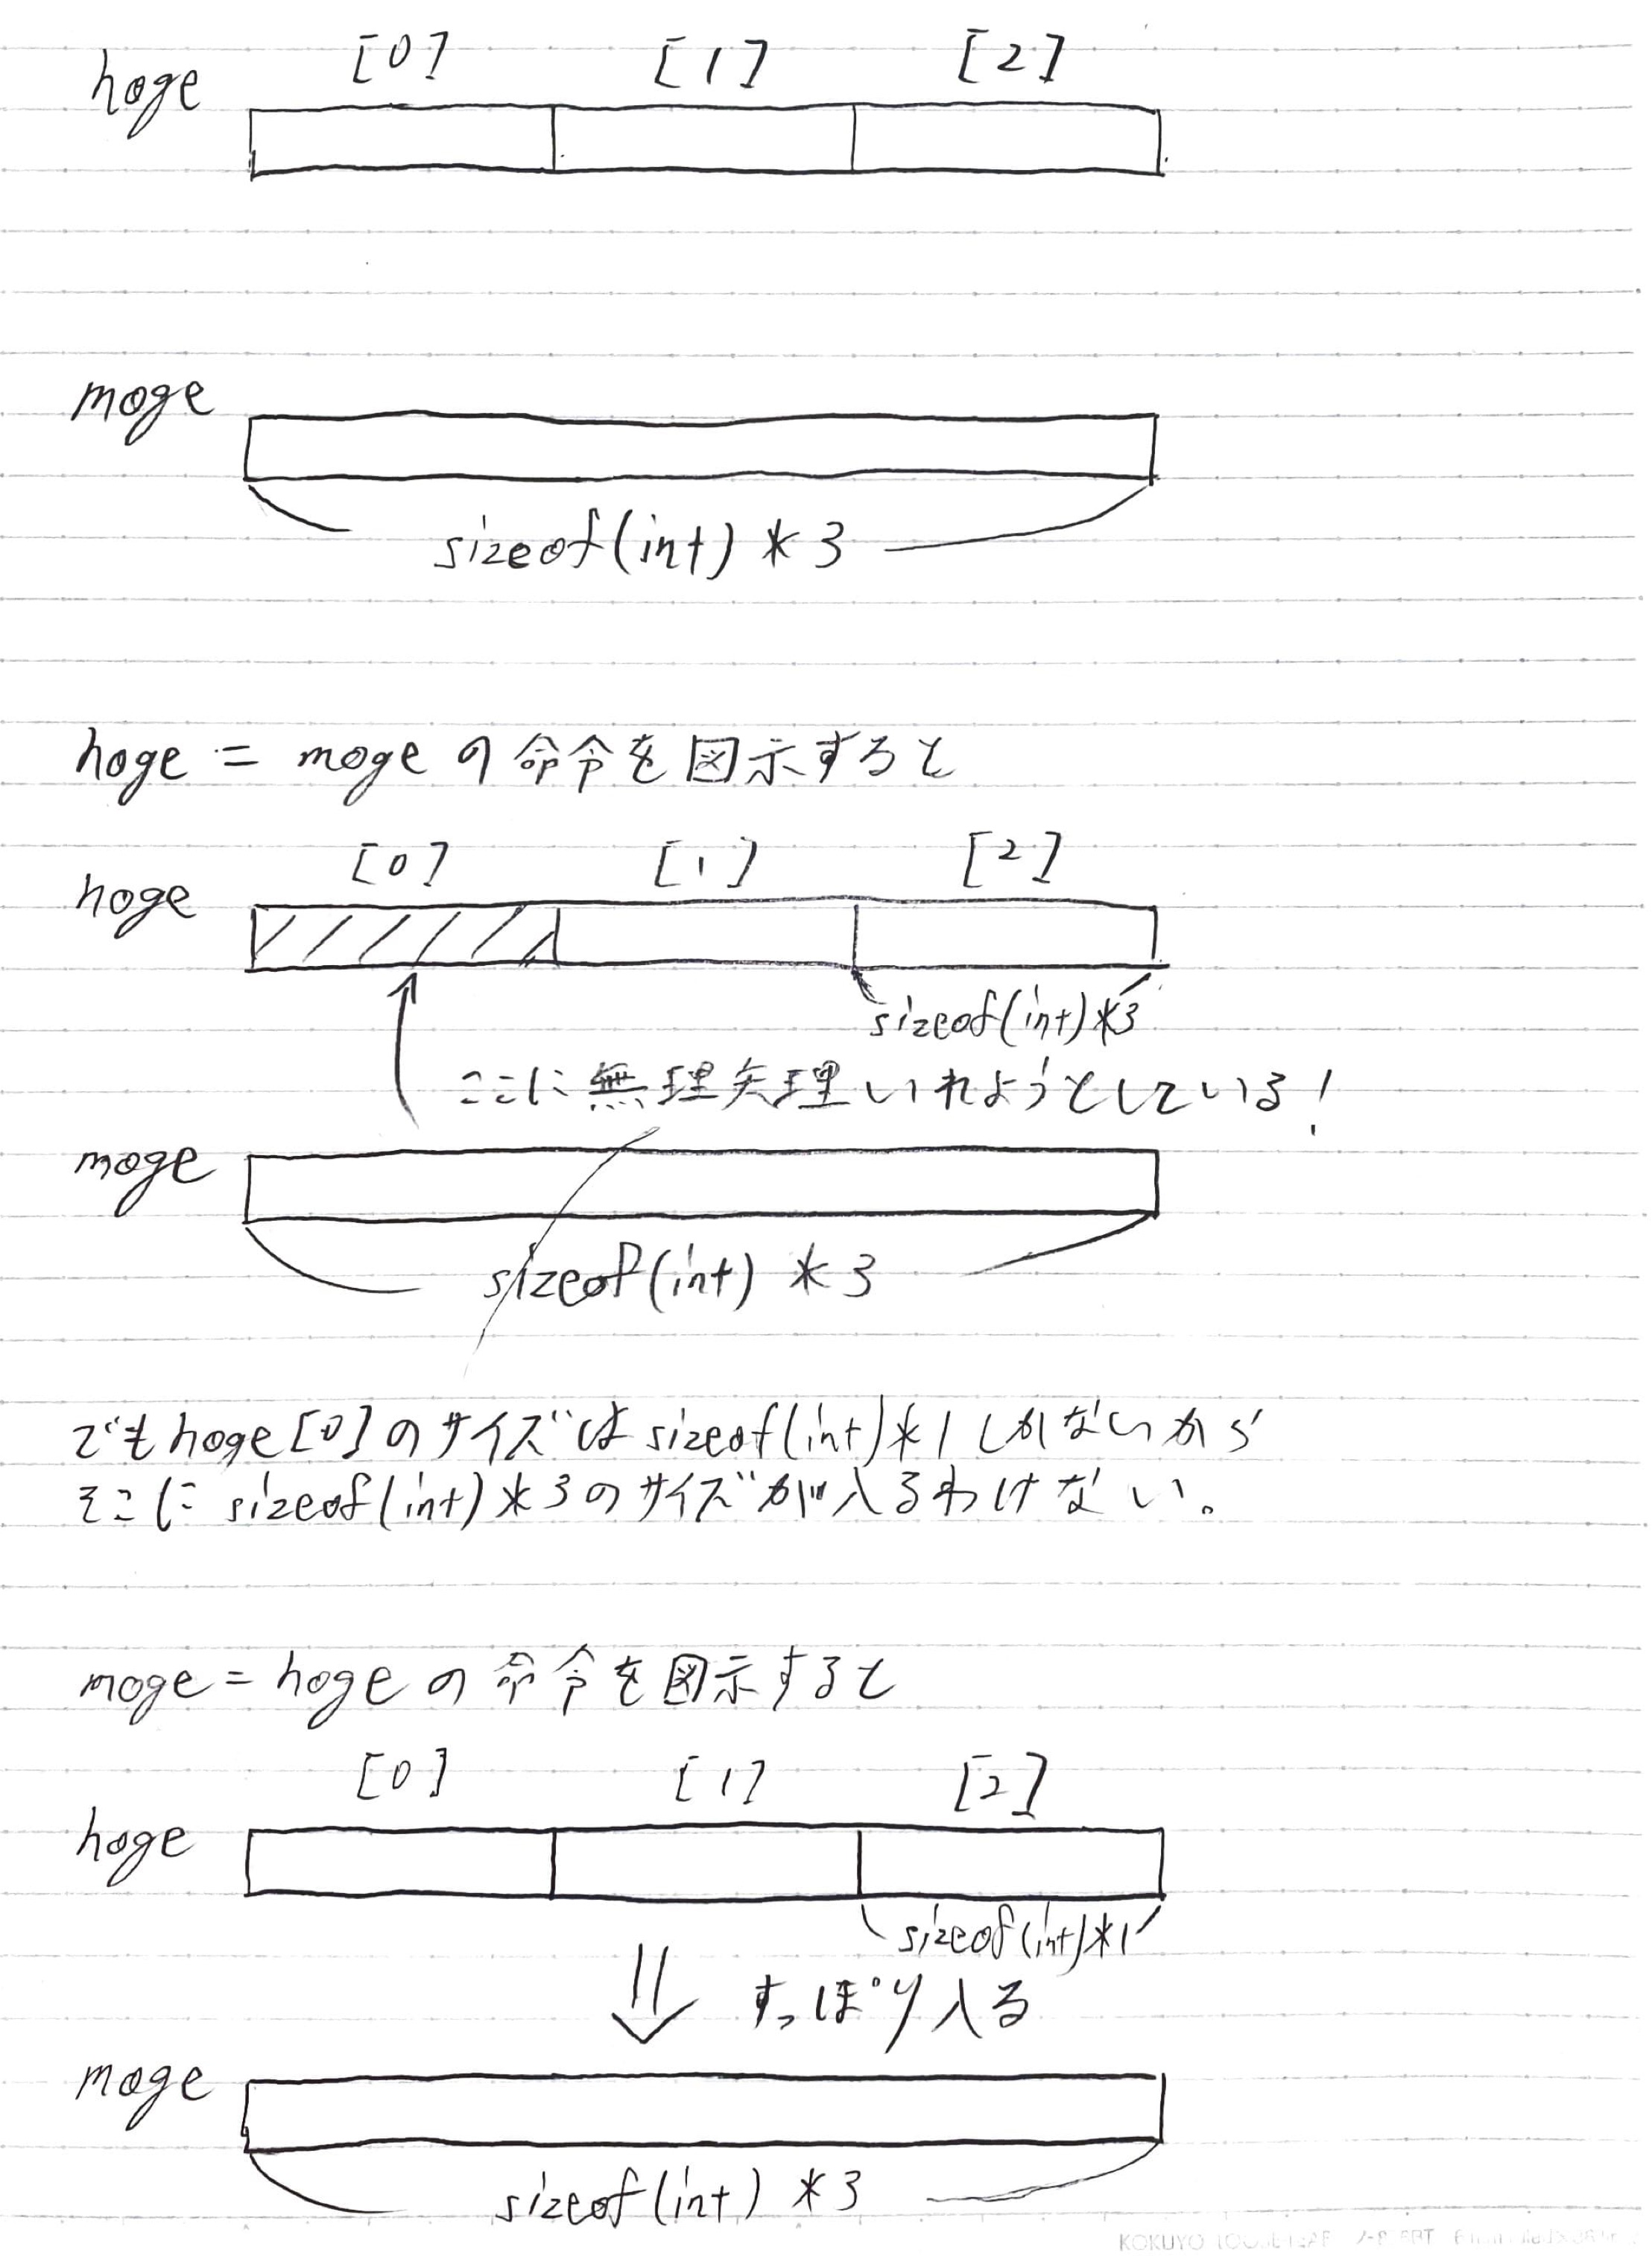 hoge [0] [1] [2]
moge
sizeof(int) * 3
hoge = moge の命令を図示すると
[0] [1] [2]
hoge
sizeof(int)*3
ここに無理矢理いれようとしている!
moge
sizeof(int) * 3
でもhoge[0]のサイズはsizeof(int)*1しかないから
そこに sizeof(int)*3のサイズが入るわけない。
moge = hoge の命令を図示すると
[0] [1] [2]
hoge
sizeof(int)*1
すっぽり入る
moge
sizeof(int) * 3
KOKUYO